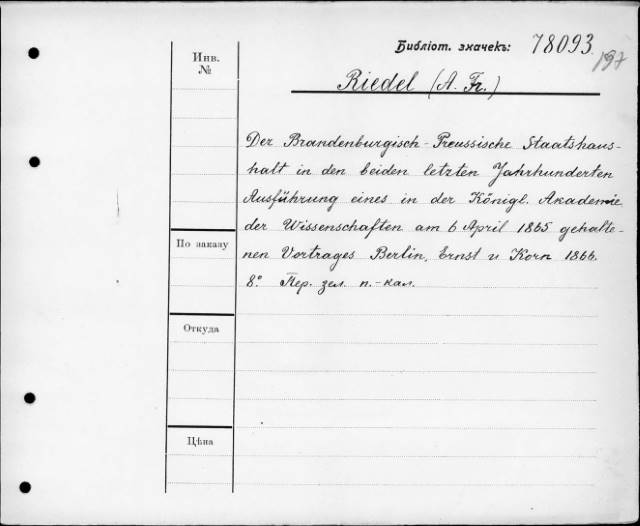 Библіот. значекъ: 78093
197
Инв.
№
Riedel (A. Fr.)
Der Brandenburgisch-Preussische Staatshaus-
halt in den beiden letzten Jahrhunderten
Ausführung eines in der Königl. Akademie
der Wissenschaften am 6 April 1865 gehalte-
nen Vortrages Berlin, Ernst u Korn 1866.
8°. Пер. зел. п.-кал.
По заказу
Откуда
Цѣна